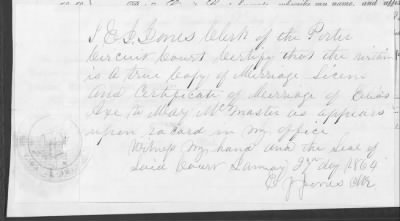 I E J Jones Clerk of the Porter
Circuit Court Certify that the within
is A true Copy of Marriage Licens
And Certificate of Marriage of
Axe to Mary McMaster as appears
upon record in my office
Witness my hand and the Seal of
Said Court day 1864
E J Jones Clk